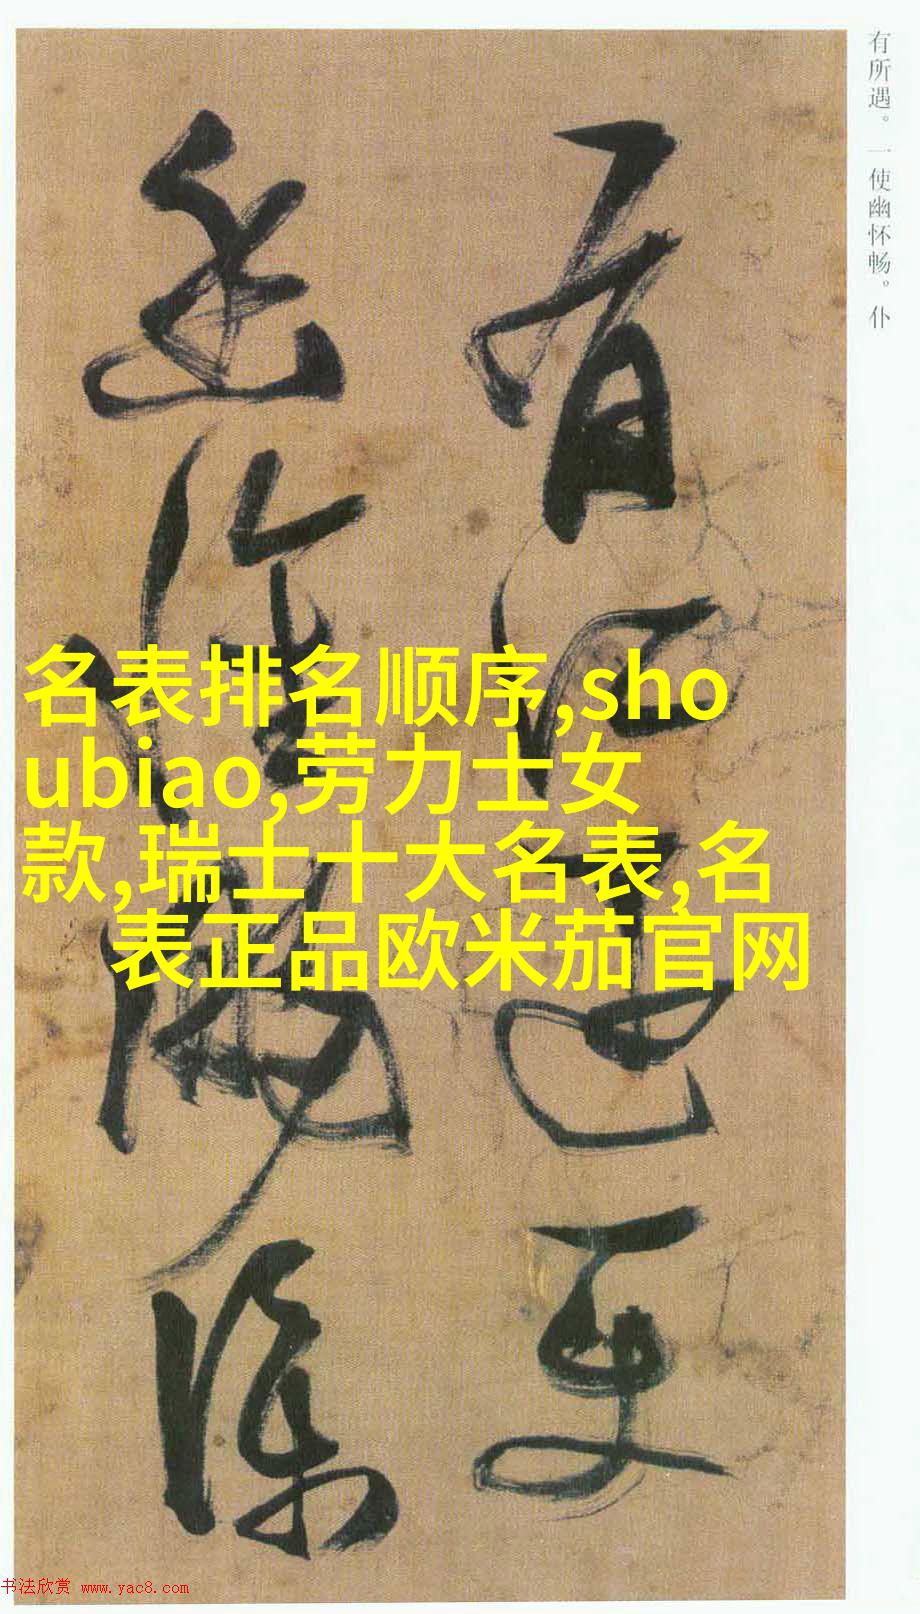 有所遇。一使幽怀畅。仆
有所遇一使
幽怀畅仆
名表排名顺序,sho
ubiao,劳力士女
款,瑞士十大名表,名
表正品欧米茄官网
书法欣赏 www.yac8.com